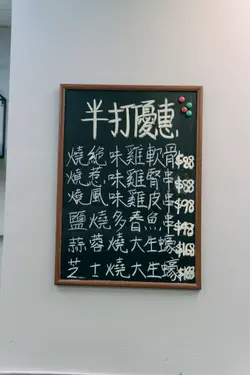 半打優惠
燒絶味雞軟骨$88
燒惹味雞腎串$88
燒風味雞皮串$98
鹽燒多春魚串
蒜蓉燒大生蠔$168
芝士燒大生蠔